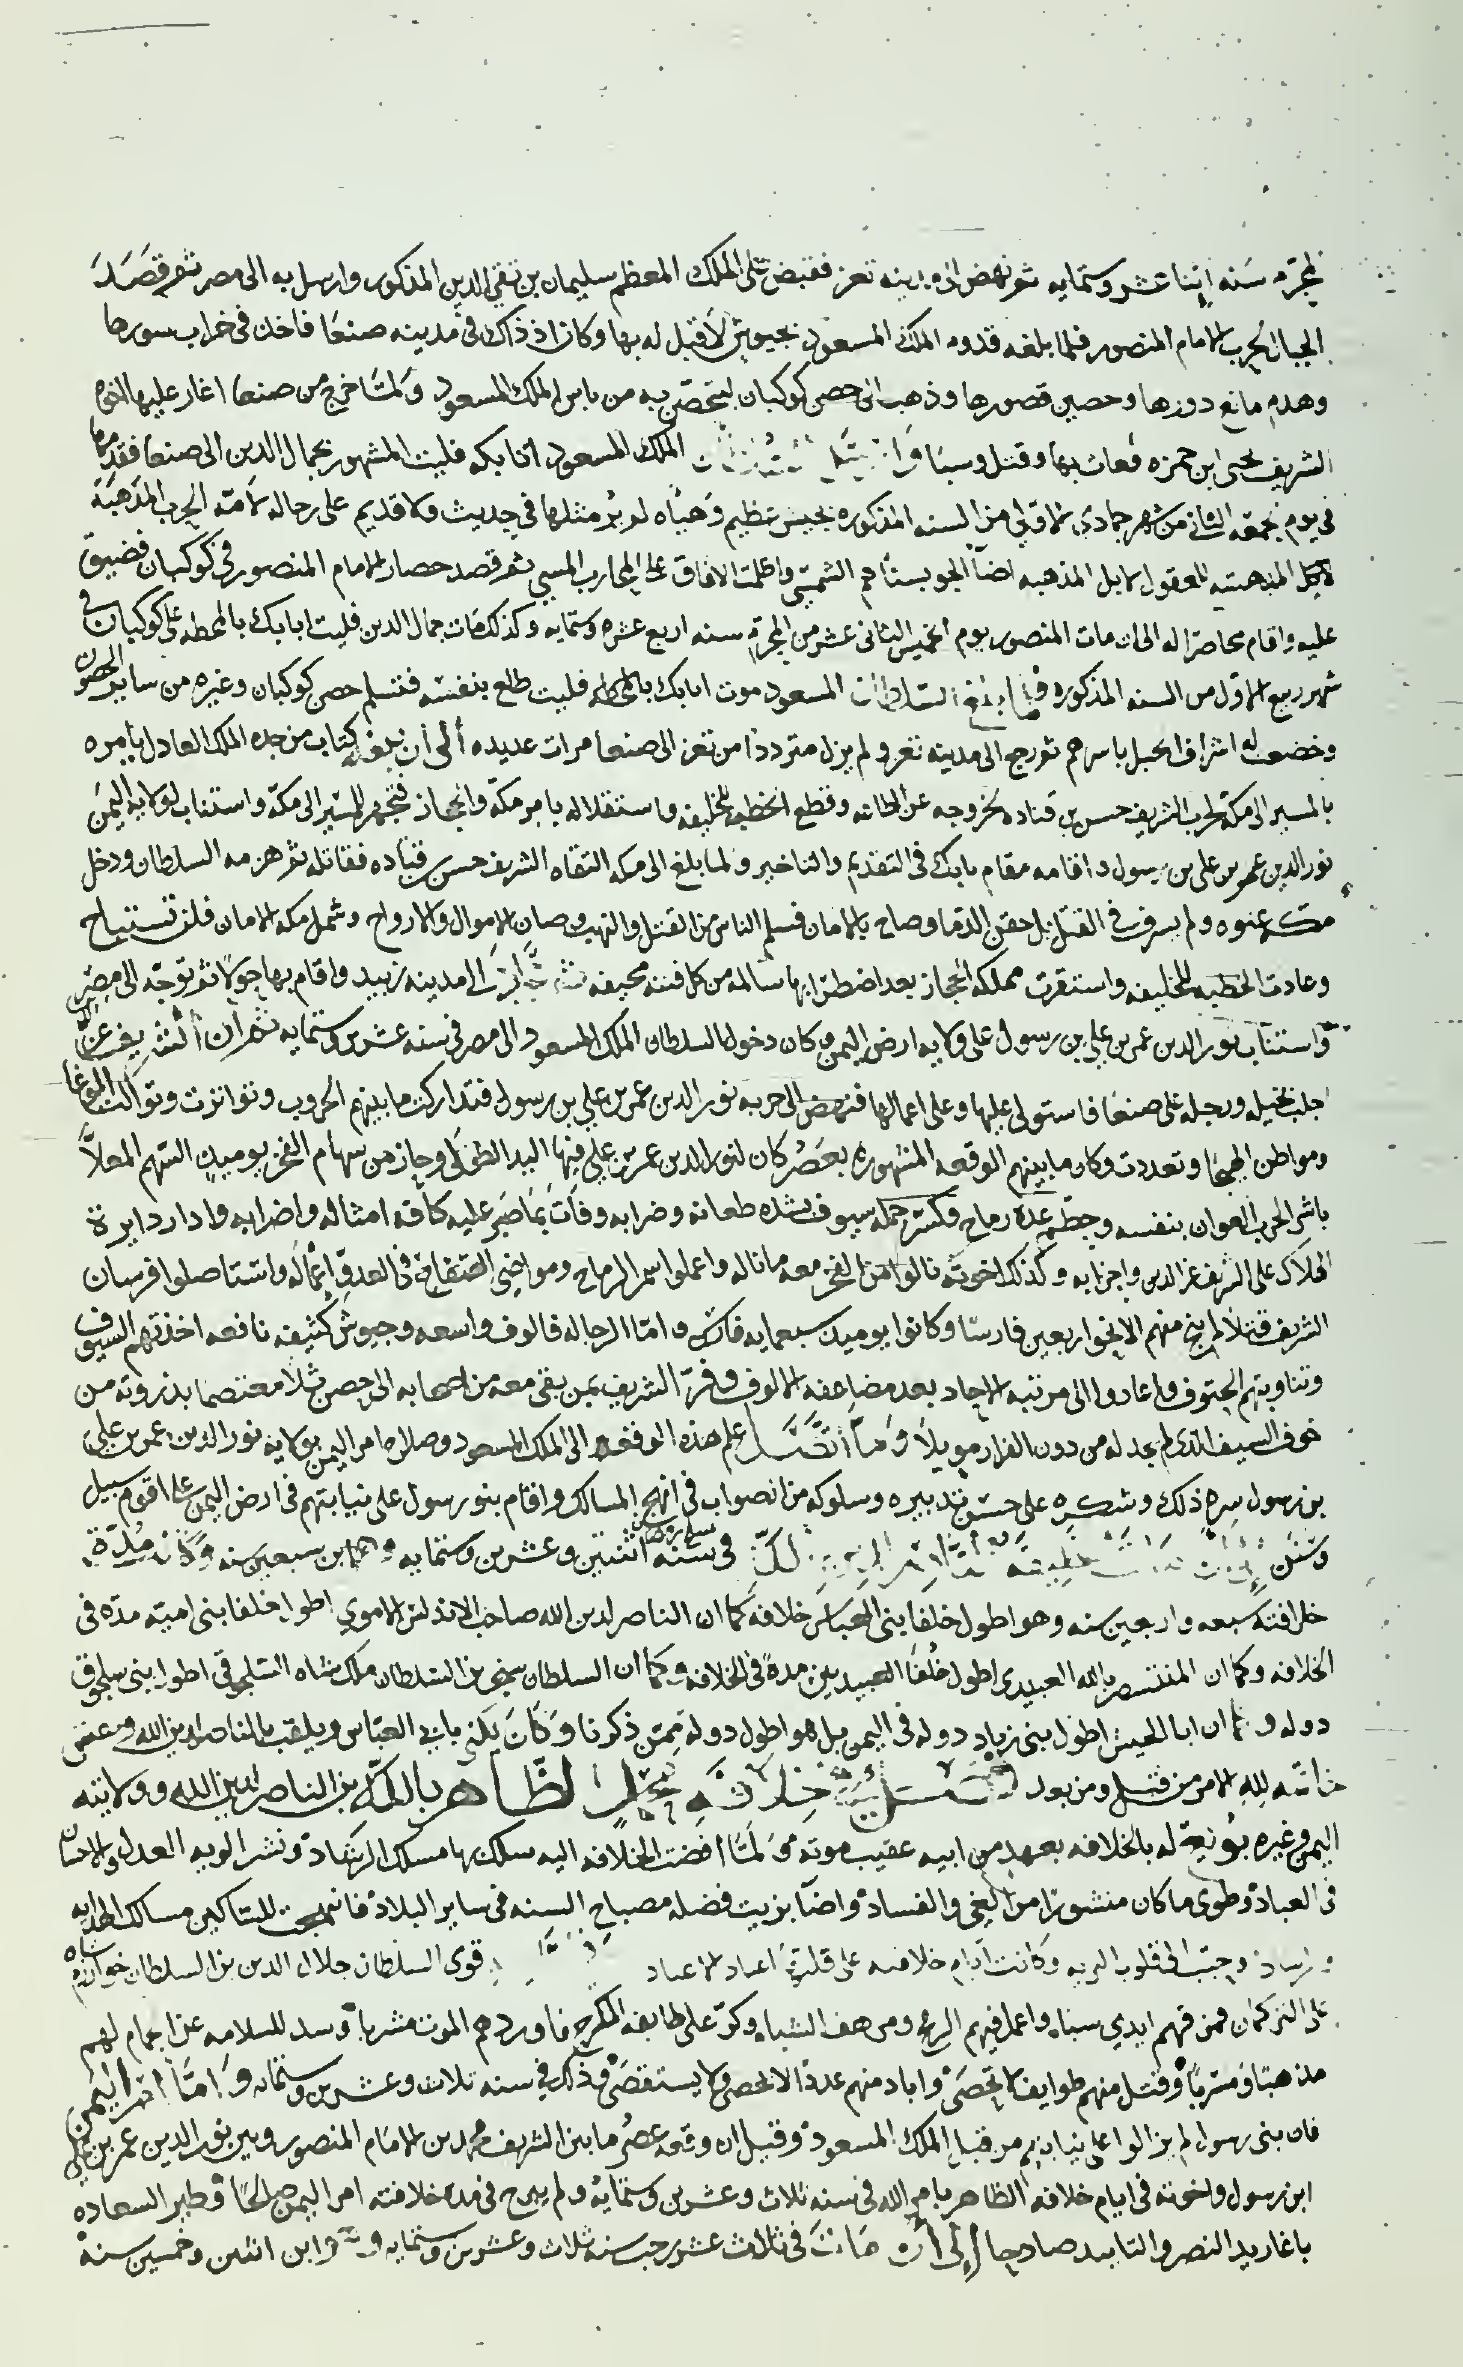 المحرم سنه اثنا عشر وستمايه ثم نهض الى مدينه تعز فقبض على الملك المعظم سليمان بن تقي الدين المذكور وارسل به الى مصر ثم قصد
الجبال لحرب الامام المنصور فلما بلغه قدوم الملك المسعود بجيوش لا قبل له بها وكان اذ ذاك في مدينه صنعا فاخذ في خراب سورها
وهدم مانع دورها وحصين قصورها وذهب الى حصن كوكبان ليتحصن به من باس الملك المسعود ولما خرج من صنعا اغار عليها
الشريف يحيى ابن حمزه فعاث بها وقتل وسبا الملك المسعود اتابكه فليت المشهور بجمال الدين الى صنعا فقدمها
في يوم الجمعه الثاني من شهر جمادى الاولى من السنه المذكوره بجيش عظيم وهياه لم ير مثلها في حديث ولا قديم على رجاله لامه الحرب المذهبة
المذهبه للعقول بل المذهبه اضا الجو بسناهم الشمسي واظلمت الافاق على المحارب المسي ثم قصد حصار الامام المنصور في كوكبان فضيق
عليه واقام محاصرا له الى ان مات المنصور يوم الخميس الثاني عشر من المحرم سنه اربع عشره وستمايه وكذلك مات جمال الدين فليت اتابك بالمحطه على كوكبان في
شهر ربيع الاول من السنه المذكوره فلما بلغ السلطان المسعود موت اتابك بالمحطه فليت طلع بنفسه فتسلم حصن كوكبان وغيره من ساير الحصون
وخضعت له اشراف الجبل باسرهم ثم رجع الى مدينه تعز ولم يزل مترددا من تعز الى صنعا مرات عديده الى أن بلغه كتاب من جده الملك العادل يامره
بالمسير الى مكة لحرب الشريف حسن بن قتاده لخروجه عن الطاعه وقطع الخطبه للخليفه واستقلاله بامر مكة والحجاز فتجهز للمسير الى مكة واستناب لولاية اليمن
نور الدين عمر بن علي بن رسول واقامه مقام بابك في التقديم والتاخير ولما بلغ الى مكه التقاه الشريف حسن بن قتاده فقاتله ثم هزمه السلطان ودخل
مكة عنوه ولم يسرف في القتل بل حقن الدما وصاح بالامان فسلم الناس من القتل والنهب وصان الاموال والارواح وشمل مكه الامان فلن تستباح
وعادت الخطبه للخليفه واستقرت مملكه الحجاز بعد اضطرابها سالمه من كل فتنه مخيفه الى مدينه زبيد واقام بها حولا ثم توجه الى مصر
واستناب نور الدين عمر بن علي بن رسول على ولايه ارض اليمن وكان دخول السلطان الملك المسعود الى مصر في سنه عشرين وستمايه ثم ان الشريف عز الدين
اجلب بخيله ورجله على صنعا فاستولى عليها وعلى اعمالها فنهض الى حربه نور الدين عمر بن علي بن رسول فتداركت ما بينهم الحروب وتواترت وتوالت الوغا
ومواطن الهيجا وتعددت وكان ما بينهم الوقعه المشهوره بعصر كان لنور الدين عمر بن علي فيها اليد الطولى وحاز من سهام الفخر يوميذ السهم المعلا
باشر الحرب العوان بنفسه وحطم عدة رماح وكسر جملة سيوف بشده طعانه وضرابه وفات بما صبر عليه كافه امثاله واضرابه وادار دايرة
الهلاك على الشريف عز الدين واحزابه وكذلك اخوته نالوا من الفخر معه ما ناله واعملوا سمر الرماح ومواضي الصفاح في العدو اعماله واستاصلوا فرسان
الشريف قتلا لم ينج منهم الا نحو اربعين فارسا وكانوا يوميذ سبعمايه فارس واما الرجاله فالوف واسعه وجيوش كثيفه نافعه اخذتهم السيوف
وتناوبتهم الحتوف واعادوا الى مرتبه الاحاد بعد مضاعفه الالوف وفر الشريف بمن بقى معه من اصحابه الى حصن ثلا معتصما بذروته من
خوف السيف الذي لم يجد له من دون الفرار مويلا ولما اتصل علم هذه الوقعه الى الملك المسعود وصلاح امر اليمن بولاية نور الدين عمر بن علي
بن رسول سره ذلك وشكره على حسن تدبيره وسلوكه من الصواب في انهج المسالك واقام بنو رسول على نيابتهم في ارض اليمن على اقوم سبيل
وسنن في سنه اثنتين وعشرين وستمايه وهو ابن سبعين سنه وكان مدة
خلافته سبعه واربعين سنه وهو اطول خلفا بني العباس خلافة كما ان الناصر لدين الله صاحب الاندلس الاموي اطول خلفا بني اميه مدة في
الخلافه وكما ان المنتصر بالله العبيدي اطول خلفا العبيديين مدة في الخلافه وكما ان السلطان سنجر بن السلطان ملك شاه السلجوقي اطول بني سلجوق
دوله وكما ان ابا الجيش اطول بني زياد دوله في اليمن بل هو اطول دولة ممن ذكرنا وكان يكنى بابي العباس ويلقب بالناصر لدين الله
لله الامر من قبل ومن بعد خلافة الظاهر بالله بن الناصر لدين الله وولايته
اليمن وغيره بويع له بالخلافه بعهد من ابيه عقيب موته ولما افضت الخلافه اليه سلك بها مسلك الرشاد ونشر الويه العدل والاحسان
في العباد وطوى ما كان منشورا من البغي والفساد واضا بزيت فضله مصباح السنه في ساير البلاد فانتهجت للسالكين مسالك الهدايه
وحبب الى قلوب البريه وكانت ايام خلافته على قلتها اعياد الاعياد قوى السلطان جلال الدين بن السلطان خوارزم شاه
على التركمان فمزقهم ايدي سباه واعمل فيهم الرمح ومرهف الشباه وكر على طايفه الكرج فاوردهم الموت مشربا وسد للسلامه عن احجام لهم
مذهبا ومسربا وقتل منهم طوايف لا تحصى واباد منهم عددا لا يحصى ولا يستقصى وذلك في سنه ثلاث وعشرين وستمايه واما امر اليمن
فان بني رسول لم يزالوا على نيابتهم من قبل الملك المسعود وقيل ان وقعه عصر ما بين الشريف محمد بن الامام المنصور وبين نور الدين عمر بن علي
ابن رسول واخوته في ايام خلافه الظاهر بامر الله في سنه ثلاث وعشرين وستمايه ولم يبرح في مدة خلافته امر اليمن صالحا وطير السعاده
باغاريد النصر والتاييد صادحا إلى أن مات في ثلاث عشر رجب سنه ثلاث وعشرين وستمايه وهو ابن اثنين وخمسين سنة